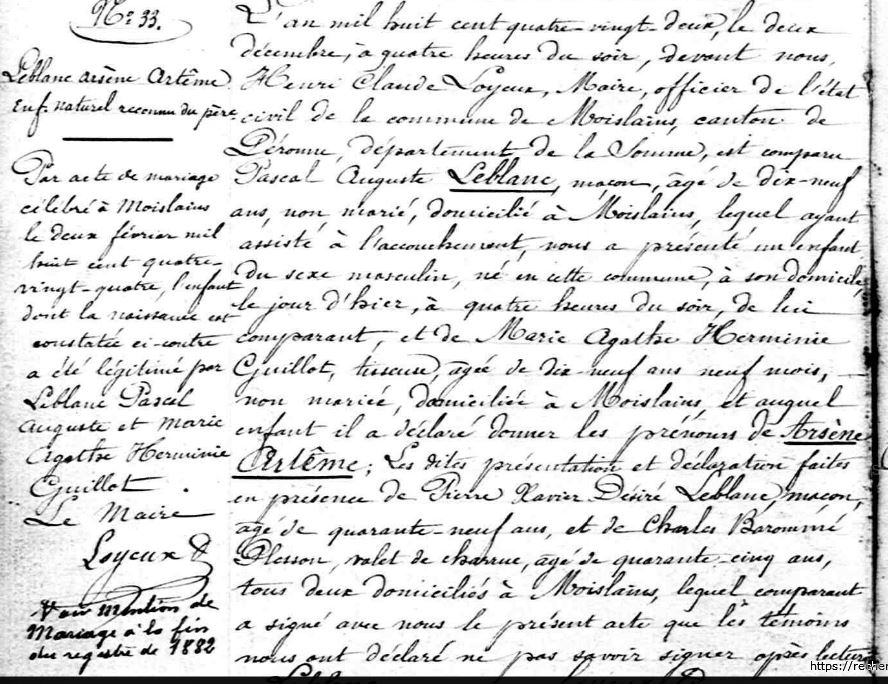 N° 33.
Leblanc Arsène Artême
Enf. naturel reconnu du père
Par acte de mariage
célébré à Moislains
le deux février mil
huit cent quatre-
vingt-quatre, l'enfant
dont la naissance est
constatée ci-contre
a été légitimé par
Leblanc Pascal
Auguste et Marie
Agathe Herminie
Guillot.
Le Maire
Loyeux
Mention de
Mariage à la fin
du registre de 1882
L'an mil huit cent quatre-vingt-deux, le deux
décembre, à quatre heures du soir, devant nous,
Henri Claude Loyeux, Maire, officier de l'état
civil de la commune de Moislains, canton de
Péronne, département de la Somme, est comparu
Pascal Auguste Leblanc, maçon, âgé de dix-neuf
ans, non marié, domicilié à Moislains, lequel ayant
assisté à l'accouchement, nous a présenté un enfant
du sexe masculin, né en cette commune, à son domicile,
le jour d'hier, à quatre heures du soir, de lui
comparant, et de Marie Agathe Herminie
Guillot, tisseuse, agée de dix-neuf ans neuf mois,
non mariée, domiciliée à Moislains, et auquel
enfant il a déclaré donner les prénoms de Arsène
Artême; Les dites présentation et déclaration faites
en présence de Pierre Xavier Désiré Leblanc, maçon,
agé de quarante-neuf ans, et de Charles Barommé
Plesson, valet de charrue, agé de quarante-cinq ans,
tous deux domiciliés à Moislains, lequel comparant
a signé avec nous le présent acte que les témoins
nous ont déclaré ne pas savoir signer après lecture
https://recher